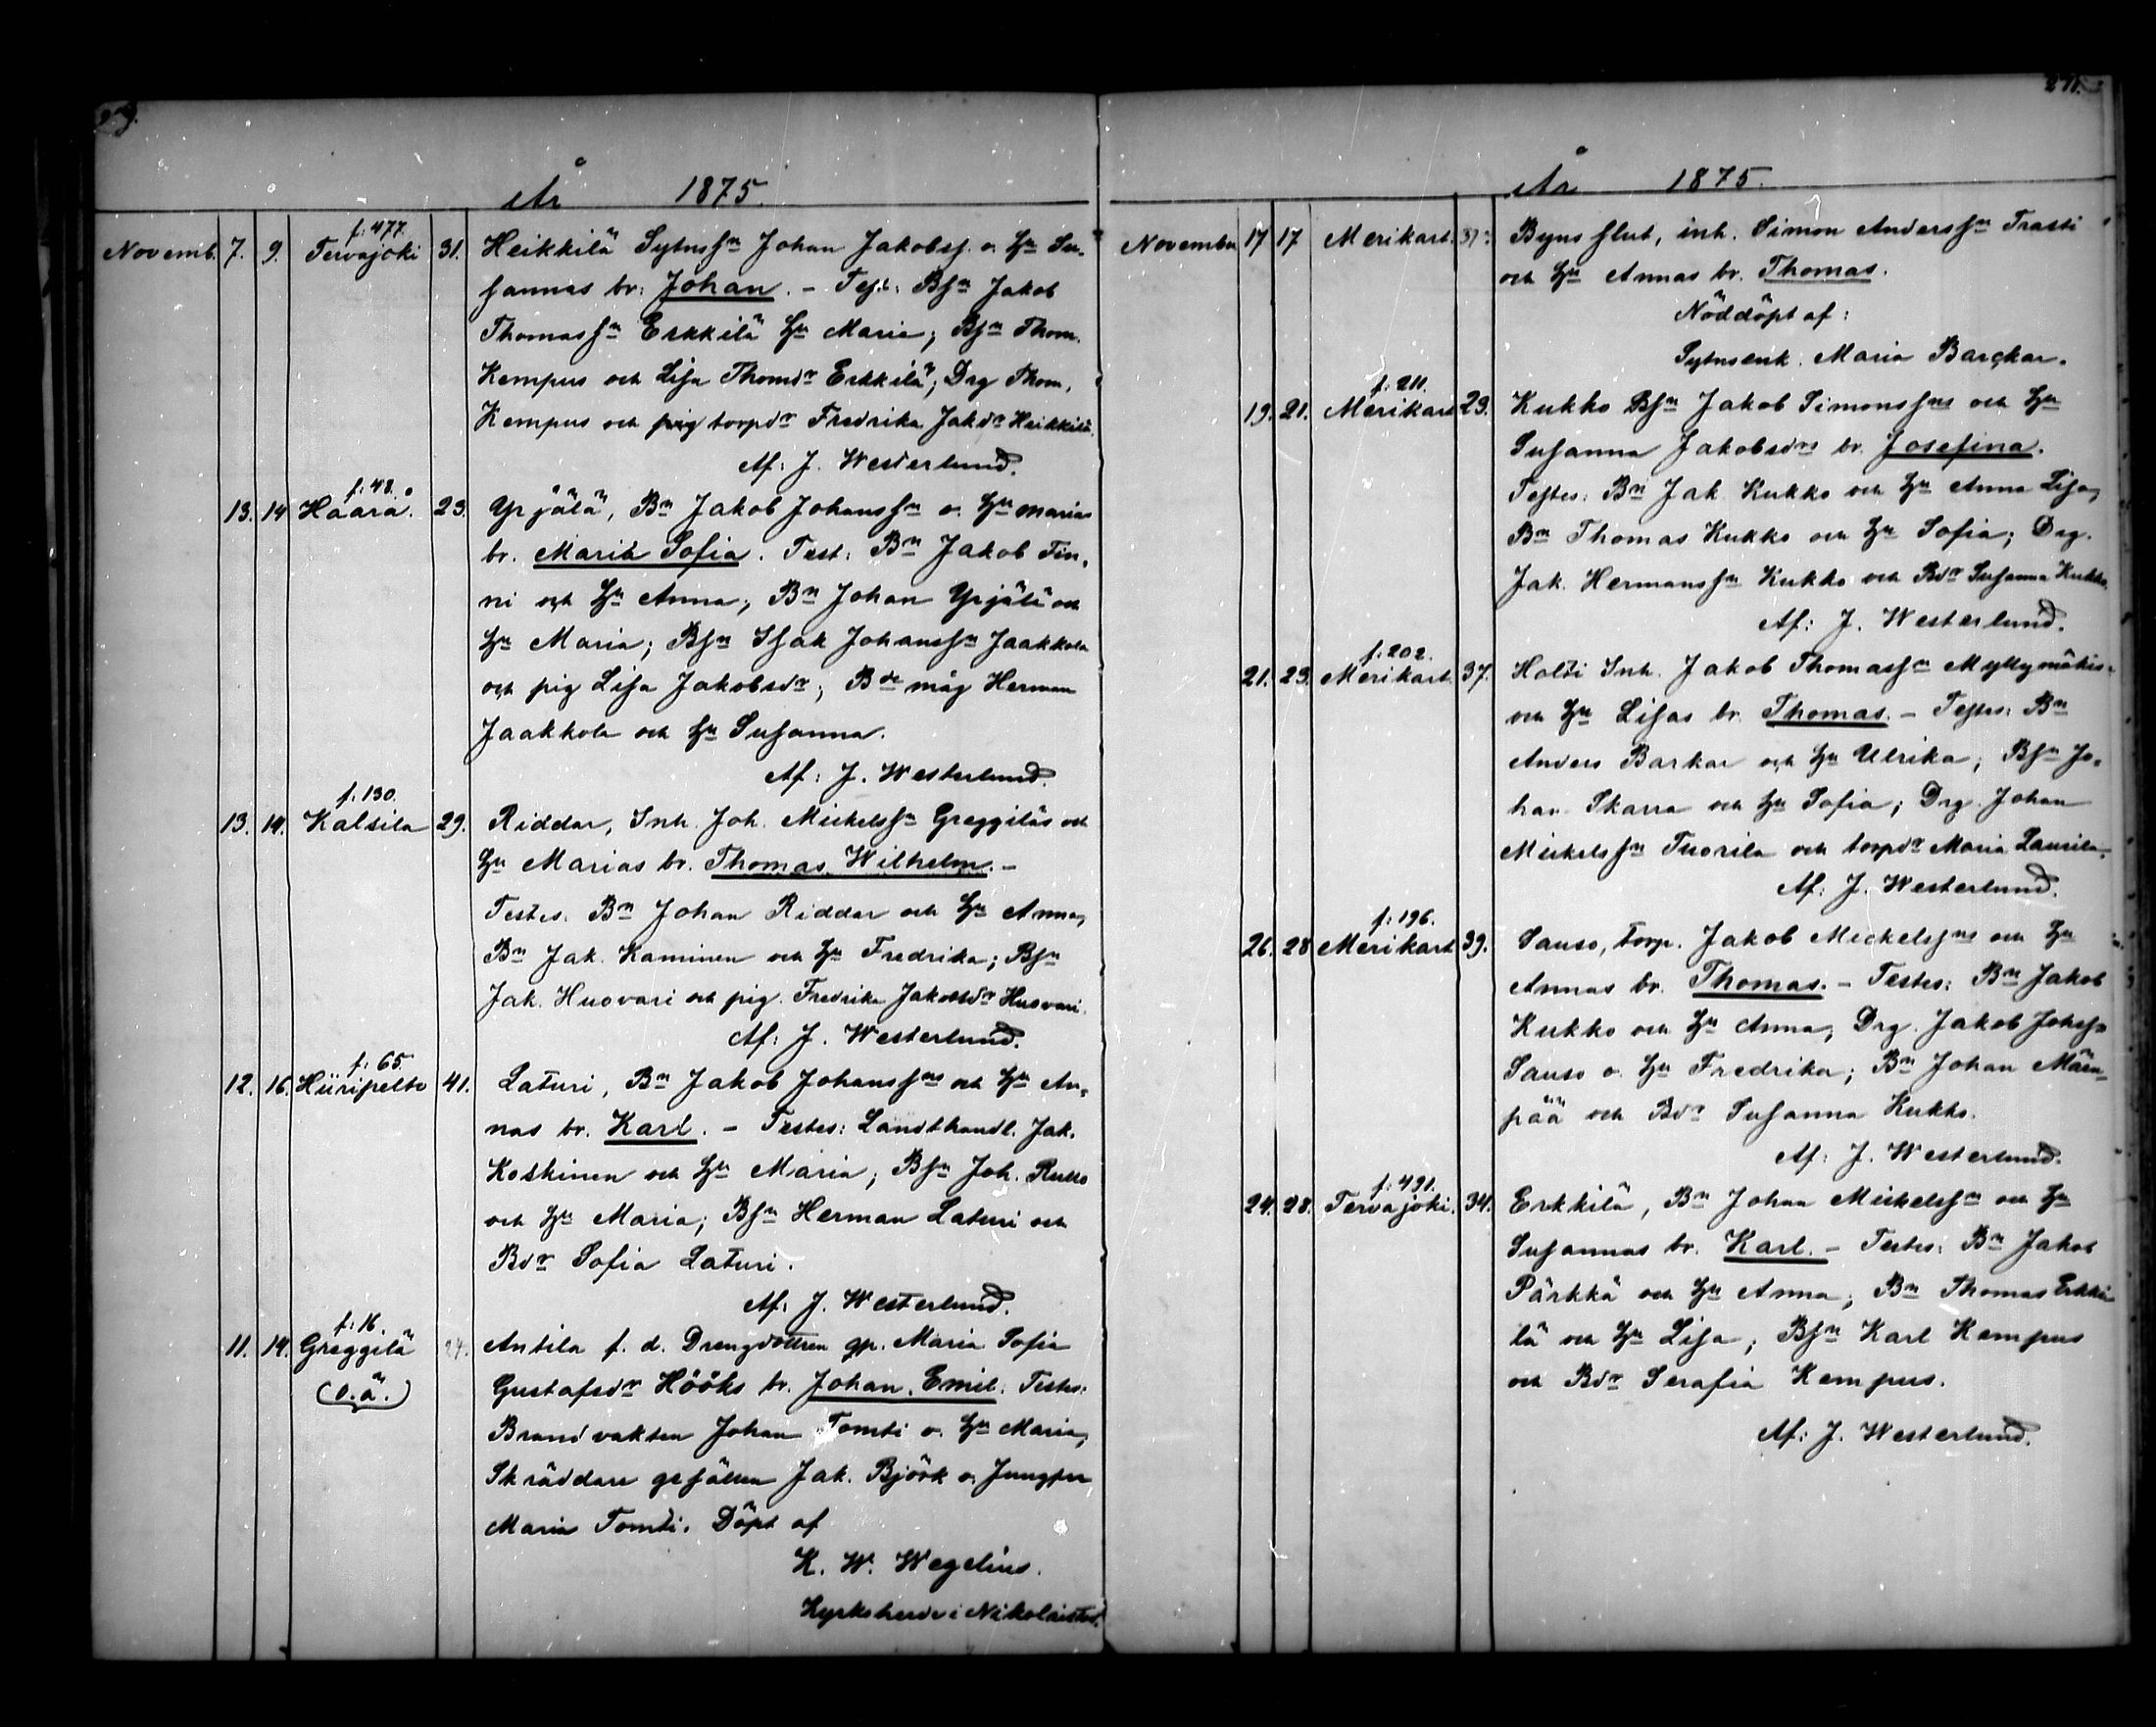 År 1875.
f: 477.
Novemb. 7. 9. Tervajoki 31. Heikkilä Sytnsſn Johan Jakobsſ. o. Hu Su-
sannas br: Johan. - Test: Bſn Jakob
Thomasſn Erkkilä Hu Maria; Bſn Thom.
Kempus och Lisa Thomdr Erkkilä; Drg Thom.
Kempus och torpdr Fredrika Jakdr Heikkilä.
Af: J. Westerlund.
f: 48.
13. 14 Haarå. 23. Yrjälä, Bn Jakob Johansſn o. Hu Marias
br. Maria Sofia. Test: Bn Jakob Fin-
ni och Hu Anna; Bn Johan Yrjälä och
Hu Maria; Bſn Isak Johansſn Jaakkola
och pig Lisa Jakobsdr; Bde måg Herman
Jaakkola och Hu Susanna.
Af: J. Westerlund.
f: 130.
13. 14. Kalsila 29. Riddar, Inh. Joh. Mickelsſn Greggiläs och
Hu Marias br. Thomas Wilhelm. -
Testes. Bn Johan Riddar och Hu Anna,
Bn Jak. Kaminen och Hu Fredrika; Bſn
Jak. Huovari och pig. Fredrika Jakobsdr Huovari.
Af: J. Westerlund.
f: 65.
12. 16. Hiiripelto 41. Laturi, Bn Jakob Johansſns och Hu An-
nas br. Karl. - Testes: Landthandl. Jak.
Koskinen och Hu Maria; Bſn Joh.
och Hu Maria; Bſn Herman Laturi och
Bdr Sofia Laturi.
Af: J. Westerlund.
f: 16.
11. 14. Greggilä 24. Antila f. d. Drengdottren qp. Maria Sofia
(o. ä.) Gustafsdr Hööks br. Johan Emil. Testes:
Brandvakten Johan Tomti o. Hu Maria,
Skräddare gesällen Jak. Björk o. Jungfru
Maria Tomti. Döpt af
K. W. Wegelius.
Kyrkoherde i Nikolaistad.
271.
År 1875.
November 17 17 Merikart. 37. Byns hut, inh. Simon Andersſn Trasti
och Hu Annas br. Thomas.
Nöddöpt af:
Sytnsenk. Maria Barckar.
f: 211.
19. 21. Merikart 29. Kukko Bſn Jakob Simonsſns och Hu
Susanna Jakobsdrs br. Josefina.
Testes: Bn Jak Kukko och Hu Anna Lisa,
Bn Thomas Kukko och Hu Sofia; Drg.
Jak. Hermansſn Kukko och Bdr Susanna Kukko.
Af: J. Westerlund.
f: 202.
21. 23. Merikart. 37. Holti Inh. Jakob Thomasſn Myllymäkis
och Hu Lisas br. Thomas. - Testes: Bn
Anders Barkar och Hu Ulrika; Bſn Jo-
han Skarra och Hu Sofia; Drg Johan
Mickelsſn Tuorila och torpdr Maria Laurila.
Af: J. Westerlund.
f: 196.
26. 28 Merikart 39. Sauso, torp. Jakob Mickelsſns och Hu
Annas br. Thomas. - Testes: Bn Jakob
Kukko och Hu Anna; Drg. Jakob Johsſn
Sauso o. Hu Fredrika; Bn Johan Mäen-
pää och Bdr Susanna Kukko.
Af: J. Westerlund.
f: 491.
24. 28. Tervajoki. 34. Erkkilä, Bn Johan Mickelsſn och Hu
Susannas br. Karl. - Testes: Bn Jakob
Pärkkä och Hu Anna; Bn Thomas Erkki-
lä och Hu Lisa; Bſn Karl Kempus
och Bdr Serafia Kempus.
Af: J. Westerlund.